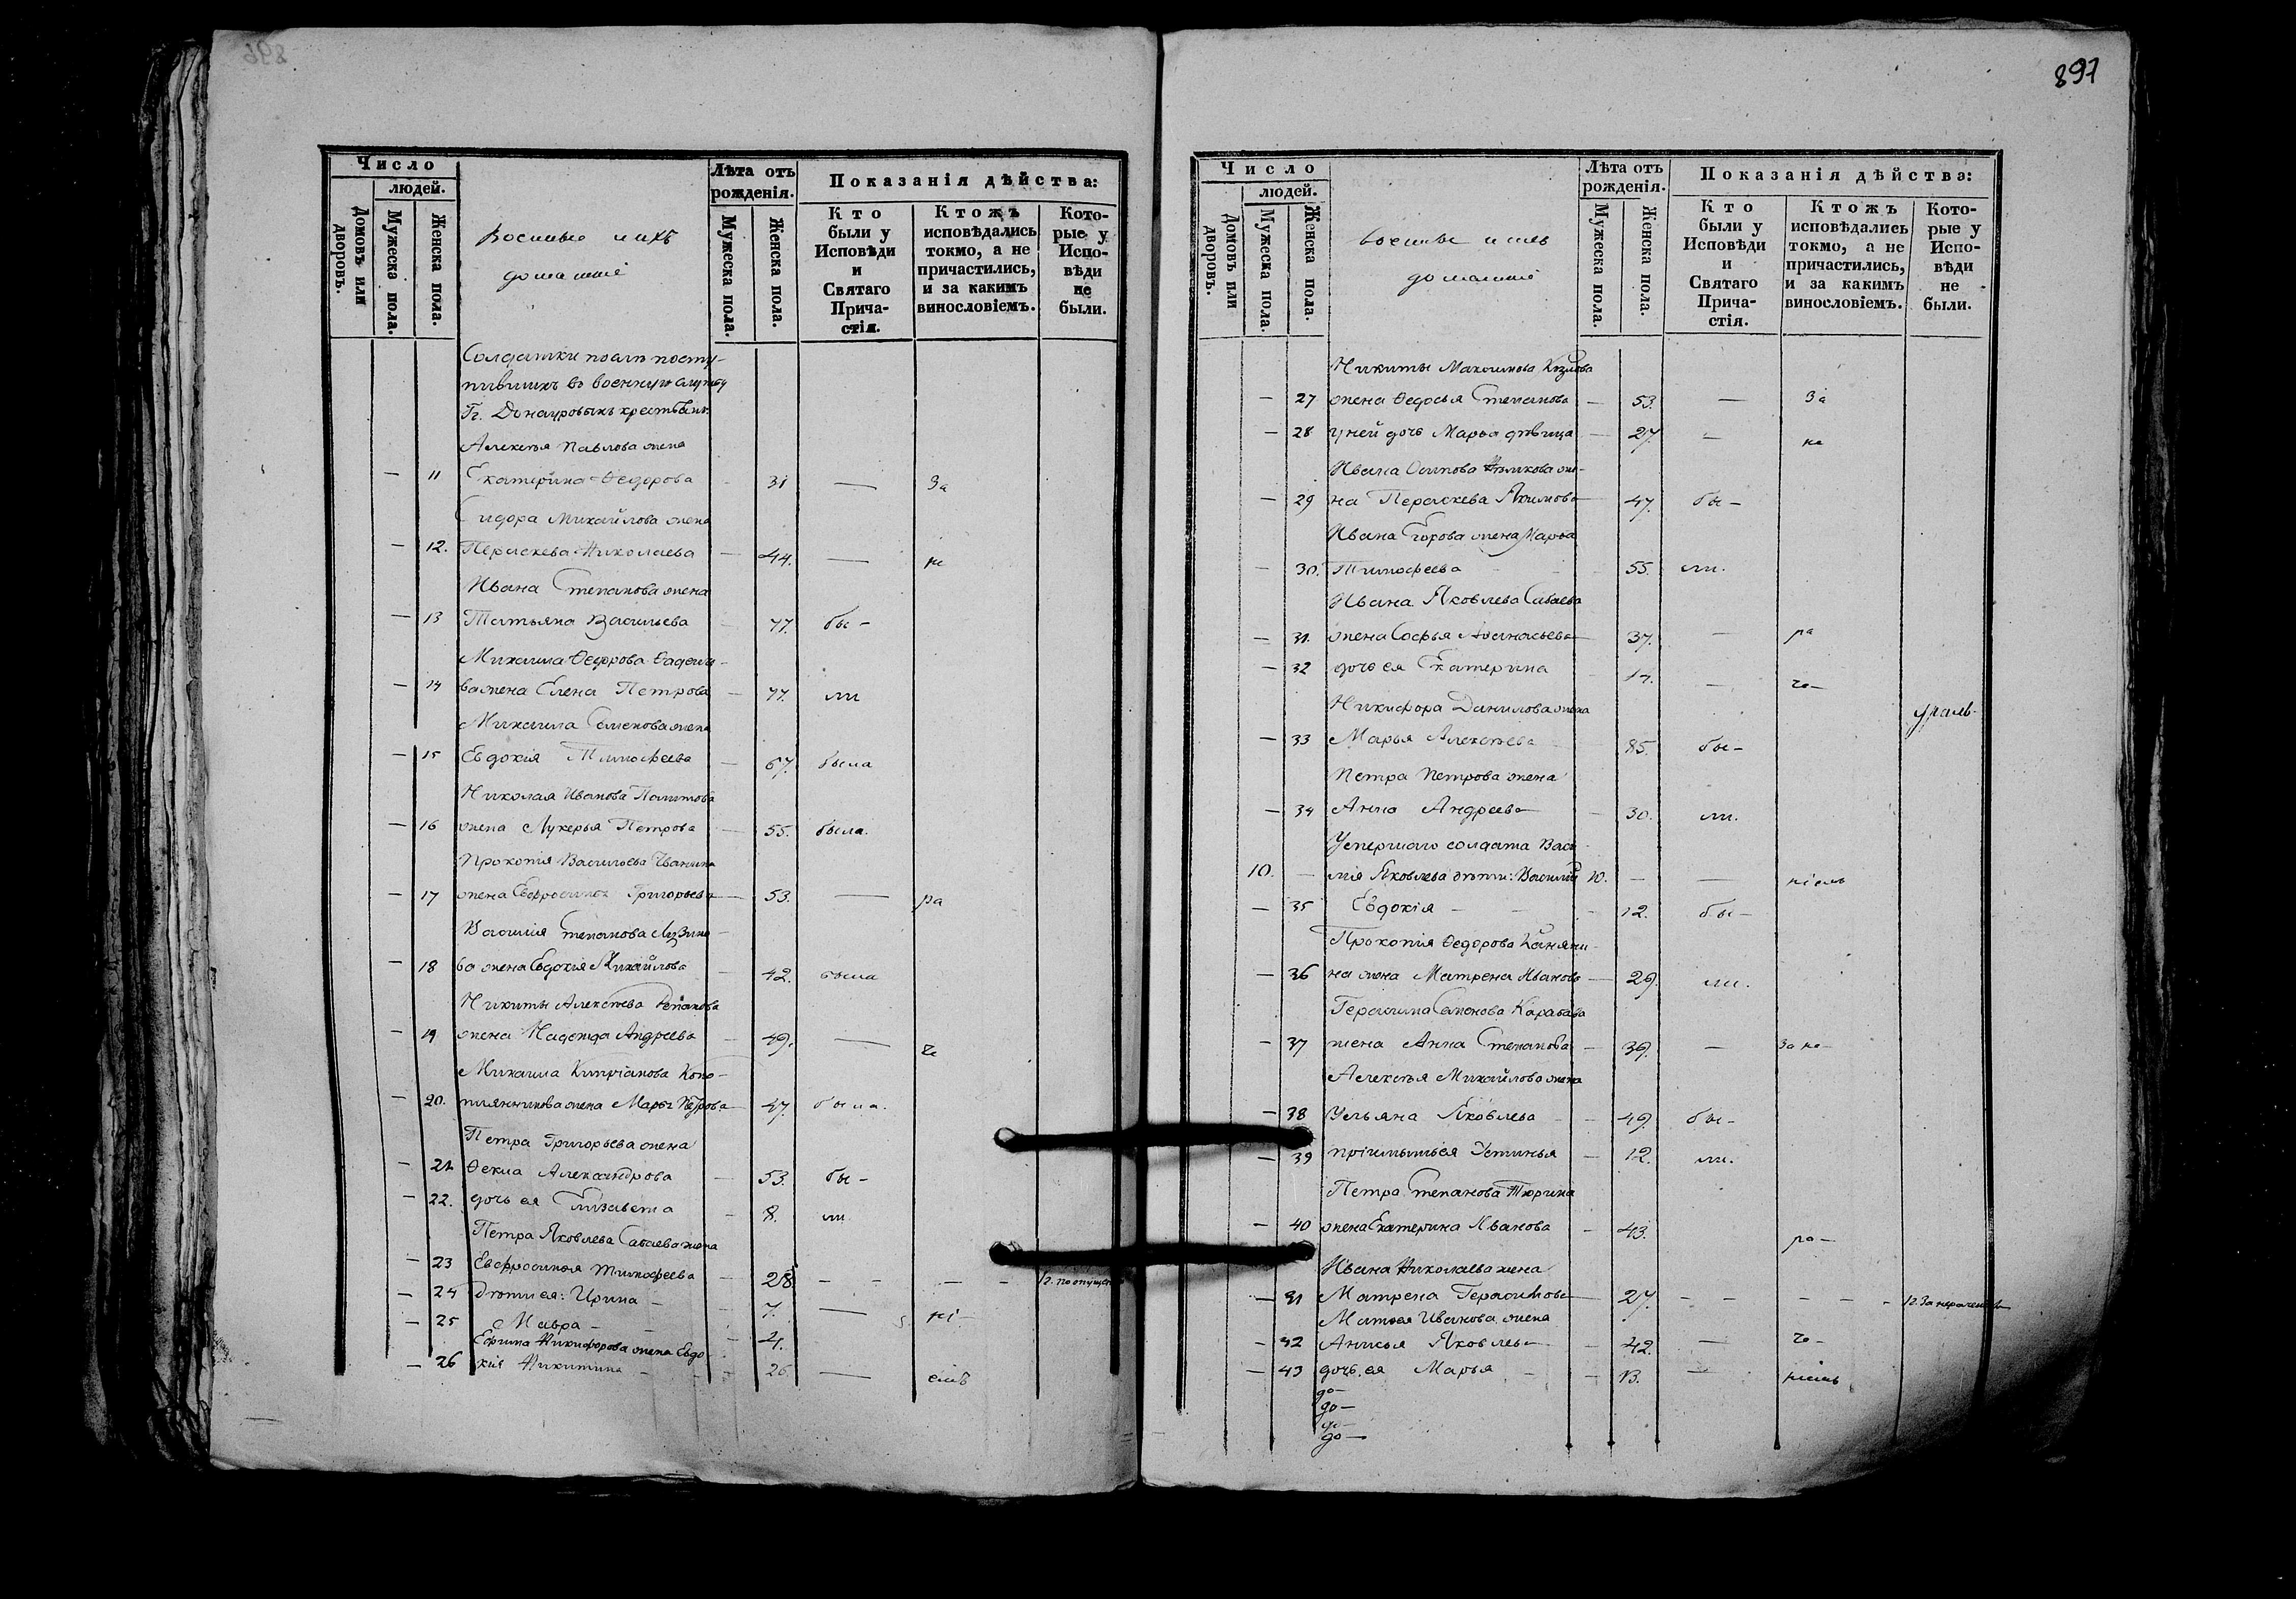 897
Число
людей.
Домовъ или дворовъ.
Мужеска пола.
Женска пола.
Военные и ихъ
домашніе
Лѣта отъ рожденія.
Мужеска пола.
Женска пола.
Показанія дѣйства:
Кто были у Исповѣди и Святаго Прича-стія.
Ктожъ исповѣдались токмо, а не причастились, и за какимъ винословіемъ.
Кото-рые у Испо-вѣди не были.
Солдатки посту-
пившихъ въ военную службу
Гг. Донауровыхъ крестьянъ
Алексѣя Павлова жена
— 11 Екатерина Ѳедорова — 31 — За
Сидора Михайлова жена
— 12. Пераскева Николаева — 44. — не
Ивана Степанова жена
— 13 Татьяна Васильева — 77. бы-
Михаила Ѳедорова
— 14 ва жена Елена Петрова — 77. ли
Михаила Семенова жена
— 15 Евдокія Тимофеева — 67. была
Николая Иванова
— 16 жена Лукерья Петрова — 55. была.
Прокопія Васильева
— 17 жена Евфросинья Григорьева — 53. — ра
Василія Степанова Лузино-
— 18 ва жена Евдокія Михайлова — 42. была
Никиты Алексѣева
— 19 жена Надежда Андреева — 49. — че
Михаила Кипріанова Коно-
— 20. плянникова жена Марья Петрова — 47. была.
Петра Григорьева жена
— 21 Ѳекла Александрова — 53. бы-
— 22. дочь ея Елизавета — 8. ли
Петра Яковлева Сабаева жена
— 23 Евфросинья Тимофеева — 28 — — — — 12. по опущен
— 24 Дѣти ея: Ирина — 7. — ні-
— 25 Мавра — — 4.
Ефима Никифорова жена Евдо-
— 26 кія Никитина — — 26 — емъ
Число
людей.
Домовъ или дворовъ.
Мужеска пола.
Женска пола.
Военные и ихъ
домашніе
Лѣта отъ рожденія.
Мужеска пола.
Женска пола.
Показанія дѣйства:
Кто были у Исповѣди и Святаго Прича-стія.
Ктожъ исповѣдались токмо, а не причастились, и за какимъ винословіемъ.
Кото-рые у Испо-вѣди не были.
Никиты Максимова Козлова
— 27 жена Ѳедосья Степанова — 53. — За
— 28 у ней дочь Марья дѣвица — 27. — не
Ивана Осипова же-
— 29 на Пераскева Якимова — 47. бы-
Ивана Егорова жена Марья
— 30. Тимофеева — 55. ли.
Ивана Яковлева Сабаева
— 31. жена Софья Аѳанасьева — 37. — ра
— 32 дочь ея Екатерина — 17. — че-
Никифора Данилова жена
— 33 Марья Алексѣева — 85. бы-
Петра Петрова жена
— 34 Анна Андреева — 30. ли.
Умершаго солдата Васи-
10. — лія Яковлева дѣти: Василій 10. — — ніемъ
— 35 Евдокія — — 12. бы-
Прокопія Ѳедорова
— 36 на жена Матрена Иванова — 29. ли.
Герасима Семенова Карабаева
— 37 жена Анна Степанова — 39. — За не-
Алексѣя Михайлова жена
— 38 Ульяна Яковлева — 49. бы-
— 39 пріимышъ ея Устинья — 12. ли.
Петра Степанова Тюрина
— 40 жена Екатерина Иванова — 43. ра-
Ивана Николаева жена
— 41 Матрена Герасимова — 27. — — — — 12. За нераченіемъ
Матвѣя Иванова жена
— 42 Анисья Яковлева — 42. — че-
— 43 дочь ея Марья — 13. — ніемъ
до-
до-
до-
до-